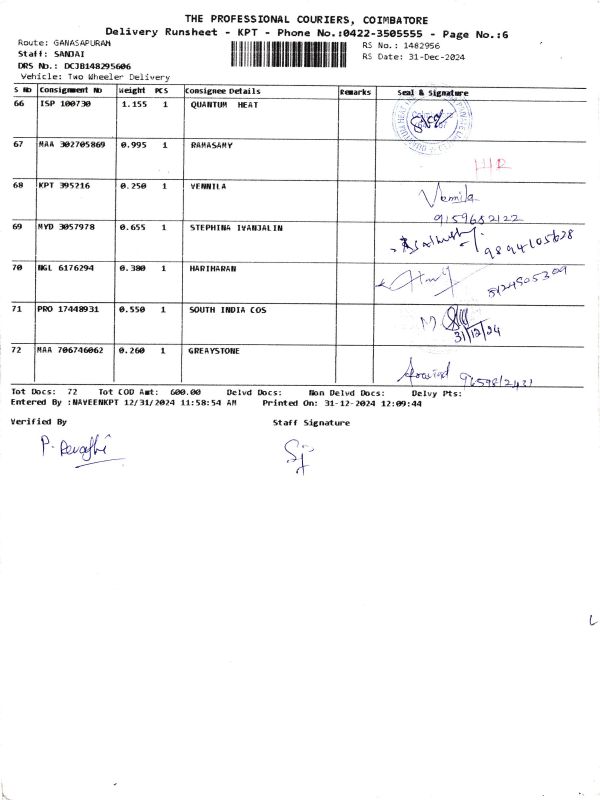 THE PROFESSIONAL COURIERS, COIMBATORE
Delivery Runsheet - KPT - Phone No.:0422-3505555 - Page No.:6
Route: GANASAPURAM
RS No.: 1482956
Staff: SANJAI
RS Date: 31-Dec-2024
DRS No.: DCJB148295606
Vehicle: Two Wheeler Delivery
S No Consignment No Weight PCS Consignee Details Remarks Seal & Signature
66 ISP 100730 1.155 1 QUANTUM HEAT
67 MAA 302705869 0.995 1 RAMASAMY
68 KPT 395216 0.250 1 VENNILA Vennila
9159682122
69 MYD 3057978 0.655 1 STEPHINA IVANJALIN 9894105628
70 NGL 6176294 0.380 1 HARIHARAN 8124505309
71 PRO 17448931 0.550 1 SOUTH INDIA COS
31/12/24
72 MAA 706746062 0.260 1 GREAYSTONE
Tot Docs: 72 Tot COD Amt: 600.00 Delvd Docs: Non Delvd Docs: Delvy Pts:
Entered By :NAVEENKPT 12/31/2024 11:58:54 AM Printed On: 31-12-2024 12:09:44
Verified By Staff Signature